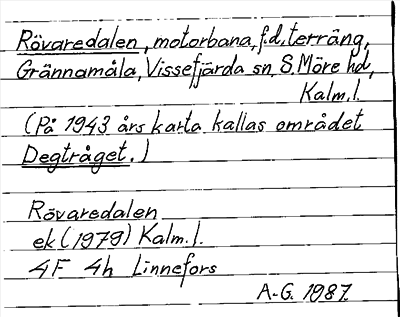 Rövaredalen, motorbana, f.d. terräng,
Grännamåla, Vissefjärda sn, S. Möre hd,
Kalm. l.
(På 1943 års karta kallas området
Degtråget.)
Rövaredalen
ek (1979) Kalm. l.
4F 4h Linnefors
A-G. 1987